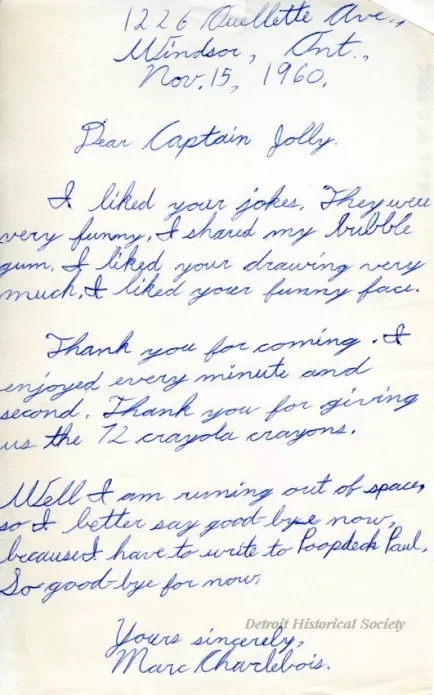 1226 Ouellette Ave.,
Windsor, Ont.,
Nov. 15, 1960.
Dear Captain Jolly.
I liked your jokes. They were
very funny. I shared my bubble
gum. I liked your drawing very
much. I liked your funny face.
Thank you for coming. I
enjoyed every minute and
second. Thank you for giving
us the 72 crayola crayons.
Well I am runing out of space,
so I better say good-bye now,
because I have to write to Poopdeck Paul.
So good-bye for now.
Detroit Historical Society
Yours sincerely,
Marc Charlebois.